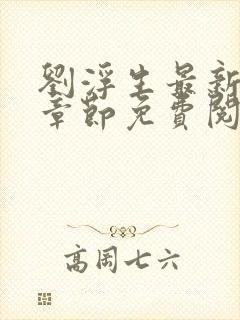 劉浮生最新
章節免費閱
高岡七六